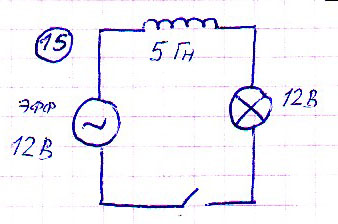 15
5 Гн
ЭФФ
12В
12В